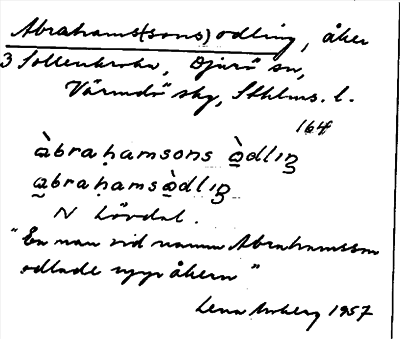 Abrahams(sons)odling, åker
3 Sollenkroka, Djurö sn,
Värmdö skg, Sthlms. l.
164
àbraḥamsons ò̱dlıŋ
a̱braḥamsò̱dlıŋ
N Lövdal.
"En man vid namn Abrahamsson
odlade upp åkern"
Lena Moberg 1957